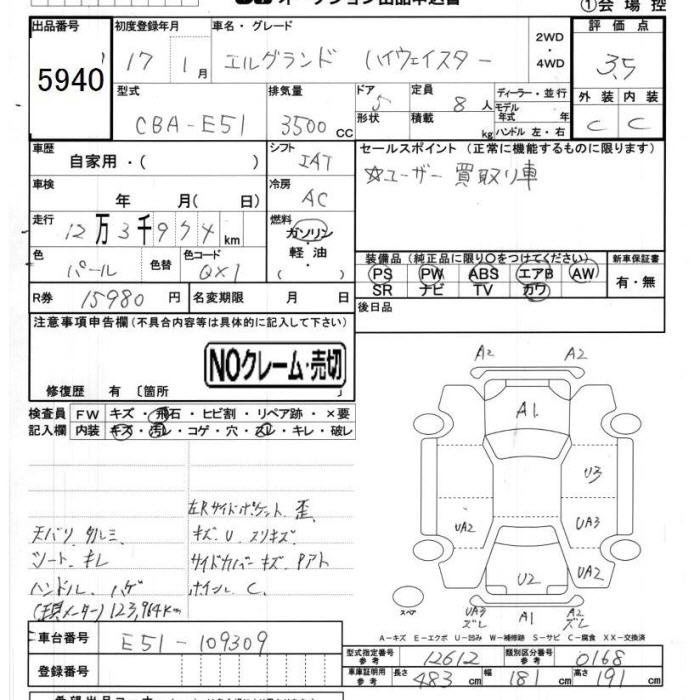 ①会場控
出品番号 初度登録年月 車名・グレード 2WD・4WD 評価点
5940 17 1月 エルグランド ハイウェイスター 3.5
型式 排気量 ドア 5 定員 8人 ディーラー・並行 外装 内装
CBA-E51 3500cc 形状 積載 kg モデル年式 年 C C
ハンドル 左・右
車歴 シフト セールスポイント (正常に機能するものに限ります)
自家用・( ) IAT ☆ユーザー買取り車
車検 年 月(日) 冷房 AC
走行 12万3千974km 燃料 ガソリン・軽油・( )
色 パール 色替 色コード QX1
装備品 (純正品に限り○をつけてください) 新車保証書
PS PW ABS エアB AW 有・無
SR ナビ TV カワ
R券 15980円 名変期限 月 日 後日品
注意事項申告欄 (不具合内容等は具体的に記入して下さい)
NOクレーム・売切
修復歴 有 〔箇所 〕
検査員 FW キズ・飛石・ヒビ割・リペア跡・×要
記入欄 内装 キズ・汚レ・コゲ・穴・スレ・キレ・破レ
A2 A2
A1
U3
UA2 UA3
UA2
U2
スペア UA3 ズレ A1 A2 ズレ
左Rサイドポケット 歪
天バリ タルミ、 キズ U スリキズ
シート キレ サイドカバー キズ Pアト
ハンドル ハゲ ホイル C
(現メーター) 123,964km
A-キズ E-エクボ U-凹み W-補修跡 S-サビ C-腐食 XX-交換済
車台番号 E51-109309
登録番号
型式指定番号 参考 12612 類別区分番号 参考 0168
車庫証明用 参考 長さ 483cm 幅 181cm 高さ 191cm